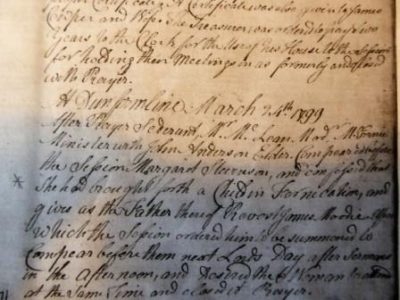 a Certificate was also given to James
Cooper and Wife. The Treasurer was ordered to pay two
years to the Clerk for the Use of his House to the Session
for holding their Meetings in as formerly and closed
with Prayer.
At Dunfermline March 24th 1799
After Prayer Sederunt, Mr. McLean, Modr.
Minister with John Anderson Elder. Compeared before
the Session Margaret and confessed that
She had brought forth a Child in Fornication, and
gives as the Father thereof Provost James Moodie
which the Session ordered him to be summoned to
Compear before them next Lords Day after Sermons
in the Afternoon, and Desired the Woman to attend
at the Same Time and closed wt Prayer.